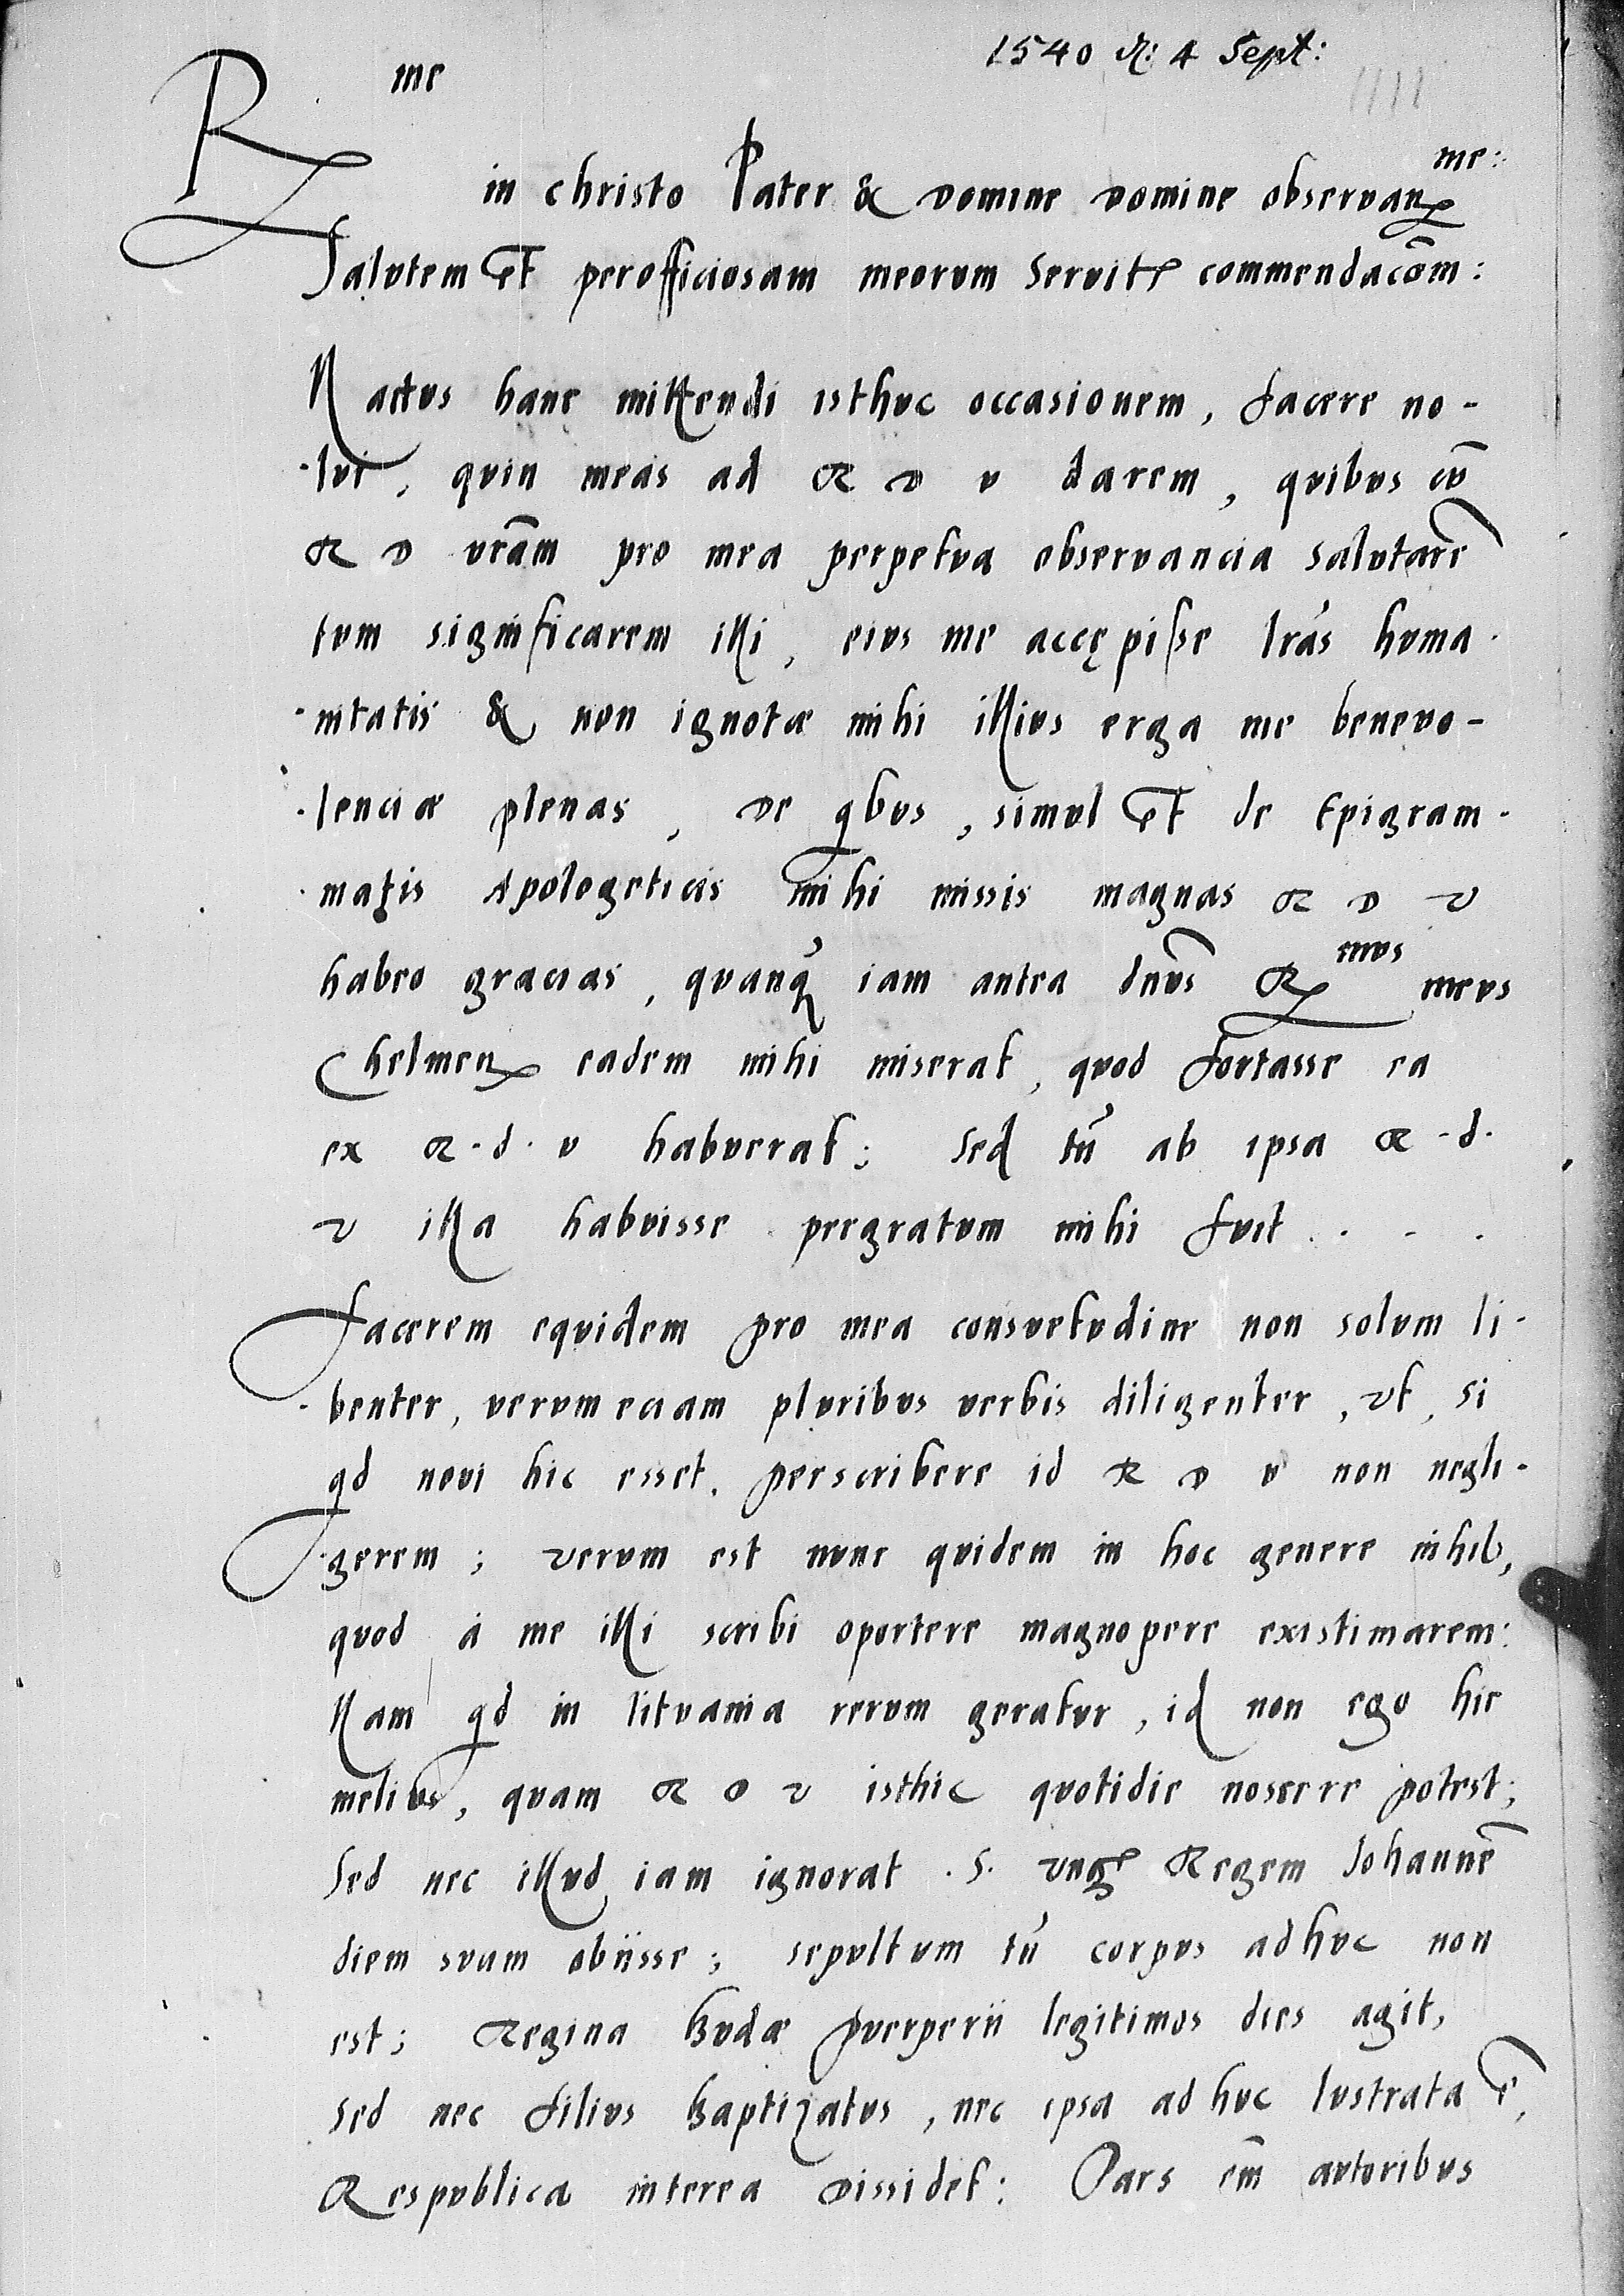 1540 d: 4 Sept:
R me
in christo Pater & domine domine observan me:
Salutem et perofficiosam meorum Servit commendacōm:
Nactus hanc mittendi isthuc occasionem, facere no-
lui, quin meas ad R D V darem, quibus cū
R D vrām pro mea perpetua observancia salutarē
tum significarem illi, eius me accępisse lrās huma
nitatis & non ignotæ mihi illius erga me benevo-
lenciæ plenas, De qbus, simul et de Epigram-
matis Apologeticis mihi missis magnas R D V
habeo gracias, quanq iam antea dnūs R mus meus
Chelmen eadem mihi miserat, quod fortasse ea
ex R. d. v habuerat; Sed tn ab ipsa R. d.
V illa habuisse pergratum mihi fuit . . .
Facerem equidem pro mea consuetudine non solum li-
benter, verum eciam pluribus verbis diligenter, ut, si
qd novi hic esset, perscribere id R D V non negli-
gerem; verum est nunc quidem in hoc genere nihil,
quod à me illi scribi oportere magnopere existimarem:
Nam qd in lituania rerum geratur, id non ego hic
melius, quam R D V isthic quotidie noscere potest;
Sed nec illud iam ignorat .S. Ung Regem Johannē
diem suam obiisse; sepultum tn corpus adhuc non
est; Regina Budæ puerperii legitimos dies agit,
Sed nec filius Baptizatus, nec ipsa adhuc lustrata ē,
Respublica interea dissidet: Pars em̄ autoribus